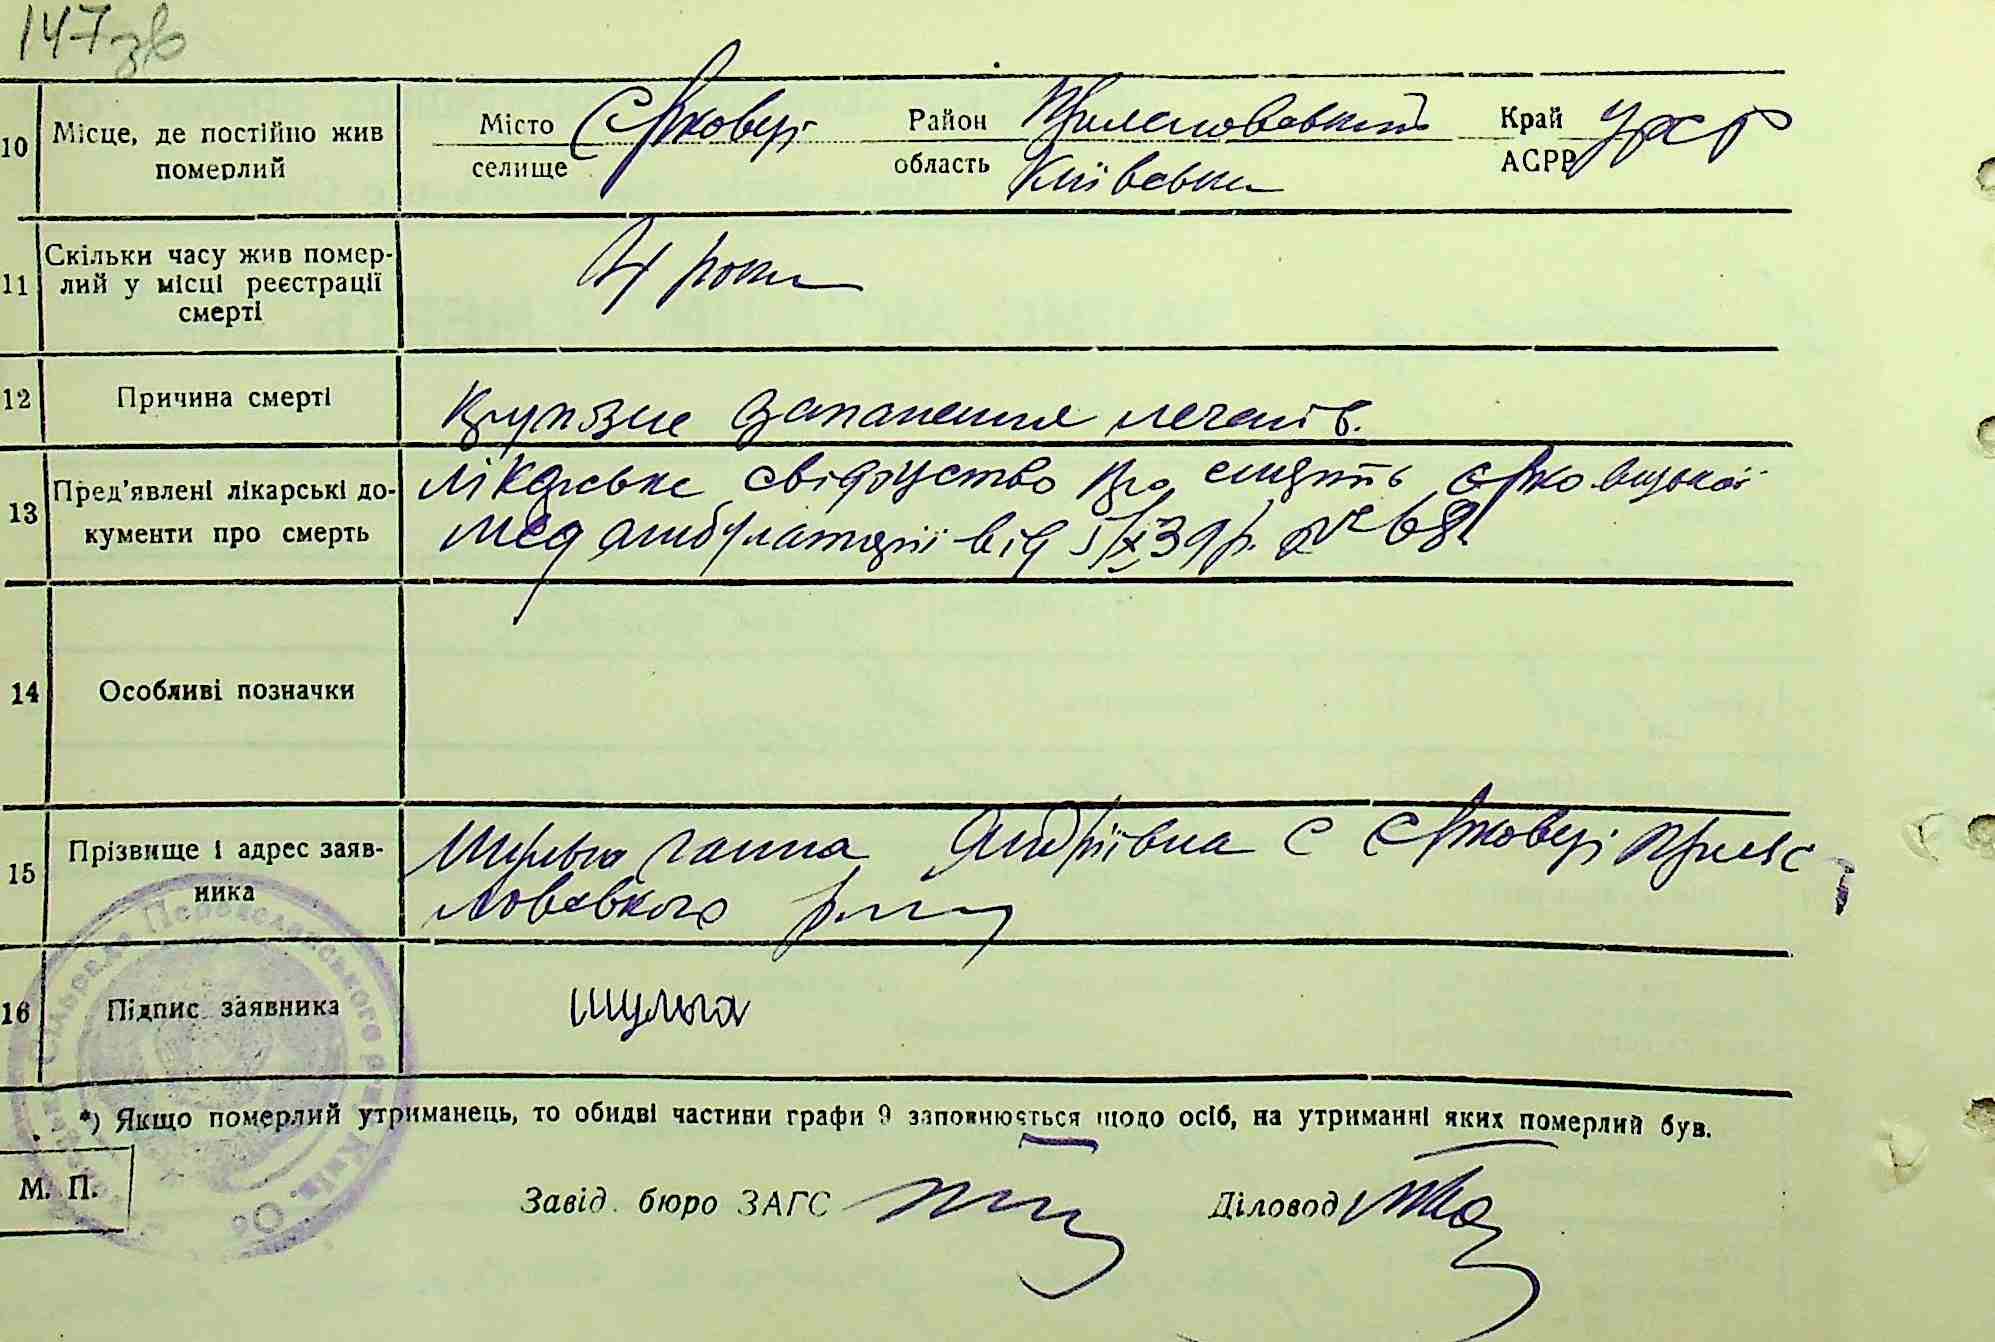 147зв
10 Місце, де постійно жив померлий Місто селище Єрковці Район область Переяславський Київська Край АСРР УРСР
11 Скільки часу жив померлий у місці реєстрації смерті 4 роки
12 Причина смерті Крупозне запалення легенів.
13 Пред'явлені лікарські документи про смерть Лікарське свідоцтво про смерть Єрковецької
мед амбулаторії від 39р. № 68
14 Особливі позначки
15 Прізвище і адрес заявника Шульга Ганна Андріївна с Єрковці
района
16 Підпис заявника Шульга
*) Якщо померлий утриманець, то обидві частини графи 9 заповнюється щодо осіб, на утриманні яких померлий був.
М. П. Завід. бюро ЗАГС Діловод
Сільрада Переяславського р-ну Київ. Об